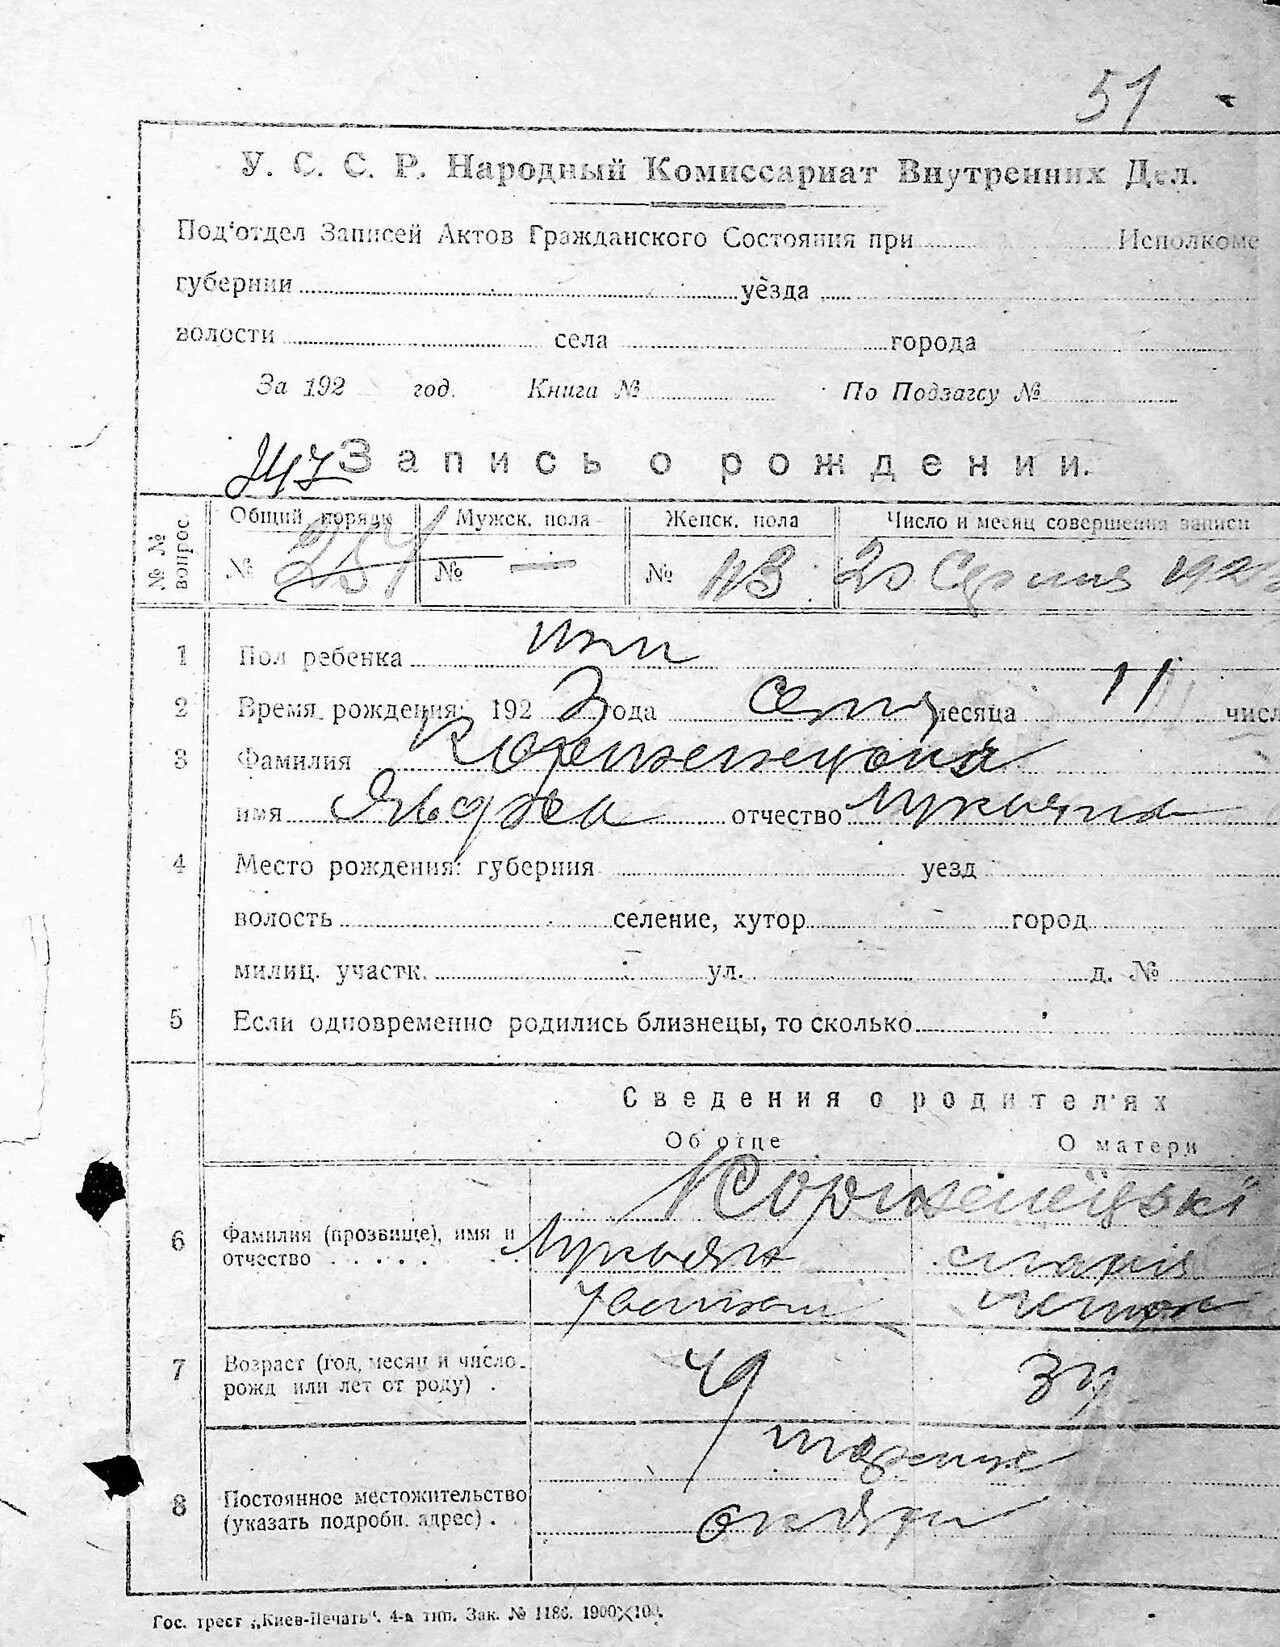 51
У. С. С. Р. Народный Комиссариат Внутренних Дел.
Под'отдел Записей Актов Гражданского Состояния при Исполкоме
губернии уезда
волости села города
За 192 год. Книга № По Подзагсу №
Запись о рождении.
№ № вопрос.
Общий порядк Мужск. пола Женск. пола Число и месяц совершения записи
№ 251 № — № 113 20 Серпня 192
1 Пол ребенка жін
2 Время рождения: 192 3 года месяца 11 числ
3 Фамилия
имя отчество Лукьяна
4 Место рождения: губерния уезд
волость селение, хутор город
милиц. участк. ул. д. №
5 Если одновременно родились близнецы, то сколько
Сведения о родителях
Об отце О матери
Корженецькі
6 Фамилия (прозвище), имя и отчество Лукьян Марія
7 Возраст (год, месяц и число рожд или лет от роду) 49 34
8 Постоянное местожительство (указать подробн. адрес)
Гос. трест „Киев-Печать“. 4-я тип. Зак. № 1186. 1900×100.